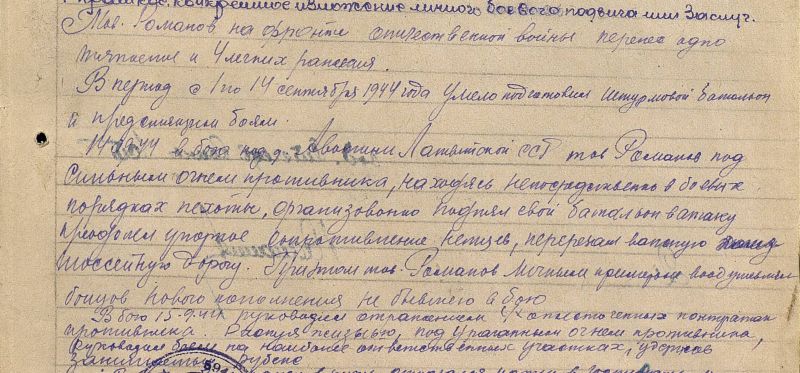 краткое, конкретное изложение личного боевого подвига или заслуг.
Тов. Романов на фронте отечественной войны перенес одно
и 4 легких ранения.
В период с 1 по 14 сентября 1944 года умело подготовил штурмовой батальон
к предстоящим боям.
14.9.44 в бою под д. Латвийской ССР тов Романов под
сильным огнем противника, находясь непосредственно в боевых
порядках пехоты, организованно поднял свой батальон в атаку
преодолел упорное сопротивление немцев, перерезал важную
шоссейную дорогу. При этом тов. Романов личным примером воодушевлял
бойцов нового пополнения не бывшего в бою
В бою 15.9.44 руководил отражением контратак
противника. Рискуя жизнью, под ураганным огнем противника,
руководил боем на наиболее ответственных участках, удержав
занимаемый рубеж